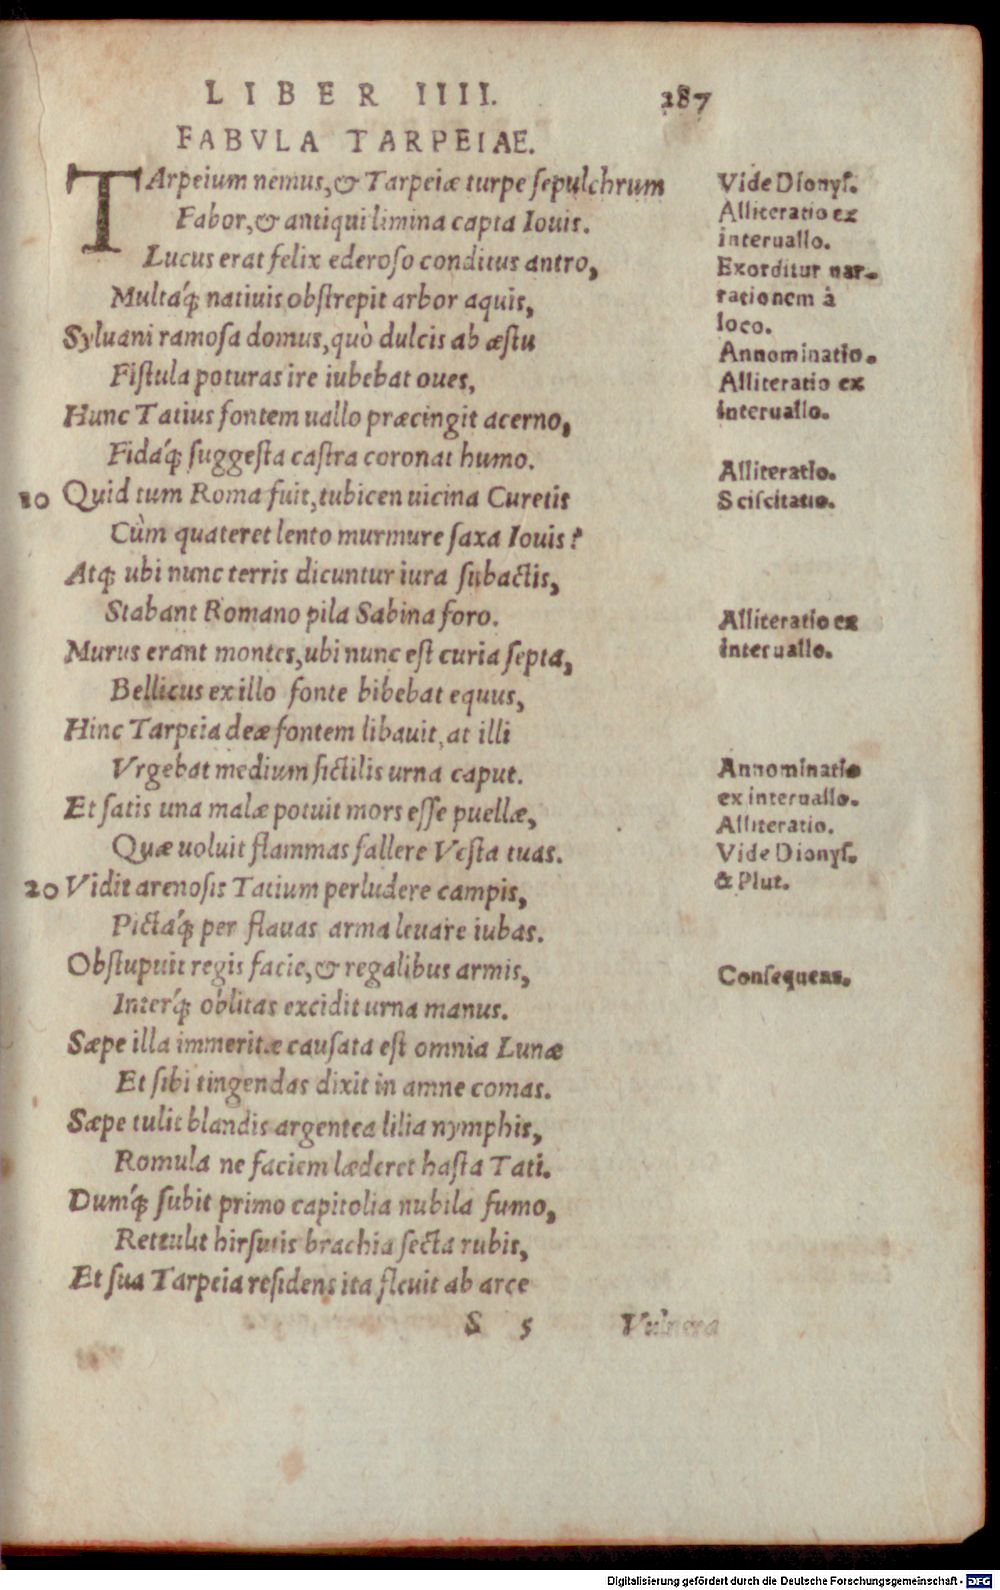 LIBER IIII. 287
FABVLA TARPEIAE.
TArpeium nemus,& Tarpeiæ turpe ſepulchrum
Fabor,& antiqui limina capta Iouis.
Lucus erat felix ederoſo conditus antro,
Multáq́; natiuis obſtrepit arbor aquis,
Syluani ramoſa domus,quò dulcis ab æſtu
Fiſtula poturas ire iubebat oues,
Hunc Tatius fontem uallo præcingit acerno,
Fidáq́; ſuggeſta caſtra coronat humo.
10 Quid tum Roma fuit,tubicen uicina Curetis
Cùm quateret lento murmure ſaxa Iouis?
Atq; ubi nunc terris dicuntur iura ſubactis,
Stabant Romano pila Sabina foro.
Murus erant montes,ubi nunc eſt curia ſepta,
Bellicus ex illo fonte bibebat equus,
Hinc Tarpeia deæ fontem libauit,at illi
Vrgebat medium fictilis urna caput.
Et ſatis una malæ potuit mors eſſe puellæ,
Quæ uoluit flammas fallere Veſta tuas.
20 Vidit arenoſis Tatium perludere campis,
Pictáq́; per flauas arma leuare iubas.
Obſtupuit regis facie,& regalibus armis,
Interq́; oblitas excidit urna manus.
Sæpe illa immeritæ cauſata eſt omnia Lunæ
Et ſibi tingendas dixit in amne comas.
Sæpe tulit blandis argentea lilia nymphis,
Romula ne faciem læderet haſta Tati.
Dumq́; ſubit primo capitolia nubila fumo,
Rettulit hirſutis brachia ſecta rubis,
Et ſua Tarpeia reſidens ita fleuit ab arce
S 5 Vulnera
Vide Dionyſ.
Alliteratio ex
interuallo.
Exorditur nar-
rationem à
loco.
Annominatio.
Alliteratio ex
interuallo.
Alliteratio.
Sciſcitatio.
Alliteratio ex
interuallo.
Annominatio
ex interuallo.
Alliteratio.
Vide Dionyſ.
& Plut.
Conſequens.
Digitalisierung gefördert durch die Deutsche Forschungsgemeinschaft - DFG